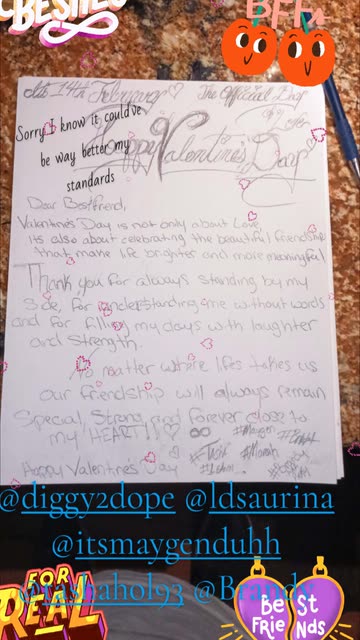 BESTIES
BFFs
14th February ♡ The Official Day
Sorry I know it could've
be way better my
standards
Happy Valentine's Day
Dear Bestfriend,
Valentine's Day is not only about Love,
its also about celebrating the beautiful friendship
that make life brighter and more meaningful
Thank you for always standing by my
side, for understanding me without words
and for filling my days with laughter
and strength.
No matter where lifes takes us
our friendship will always remain
Special, Strong and forever close to
my HEART!! ♡ ∞
Happy Valentine's Day
@diggy2dope @ldsaurina
@itsmaygenduhh
@Brandy
FOR
REAL
Be St
Frie nds